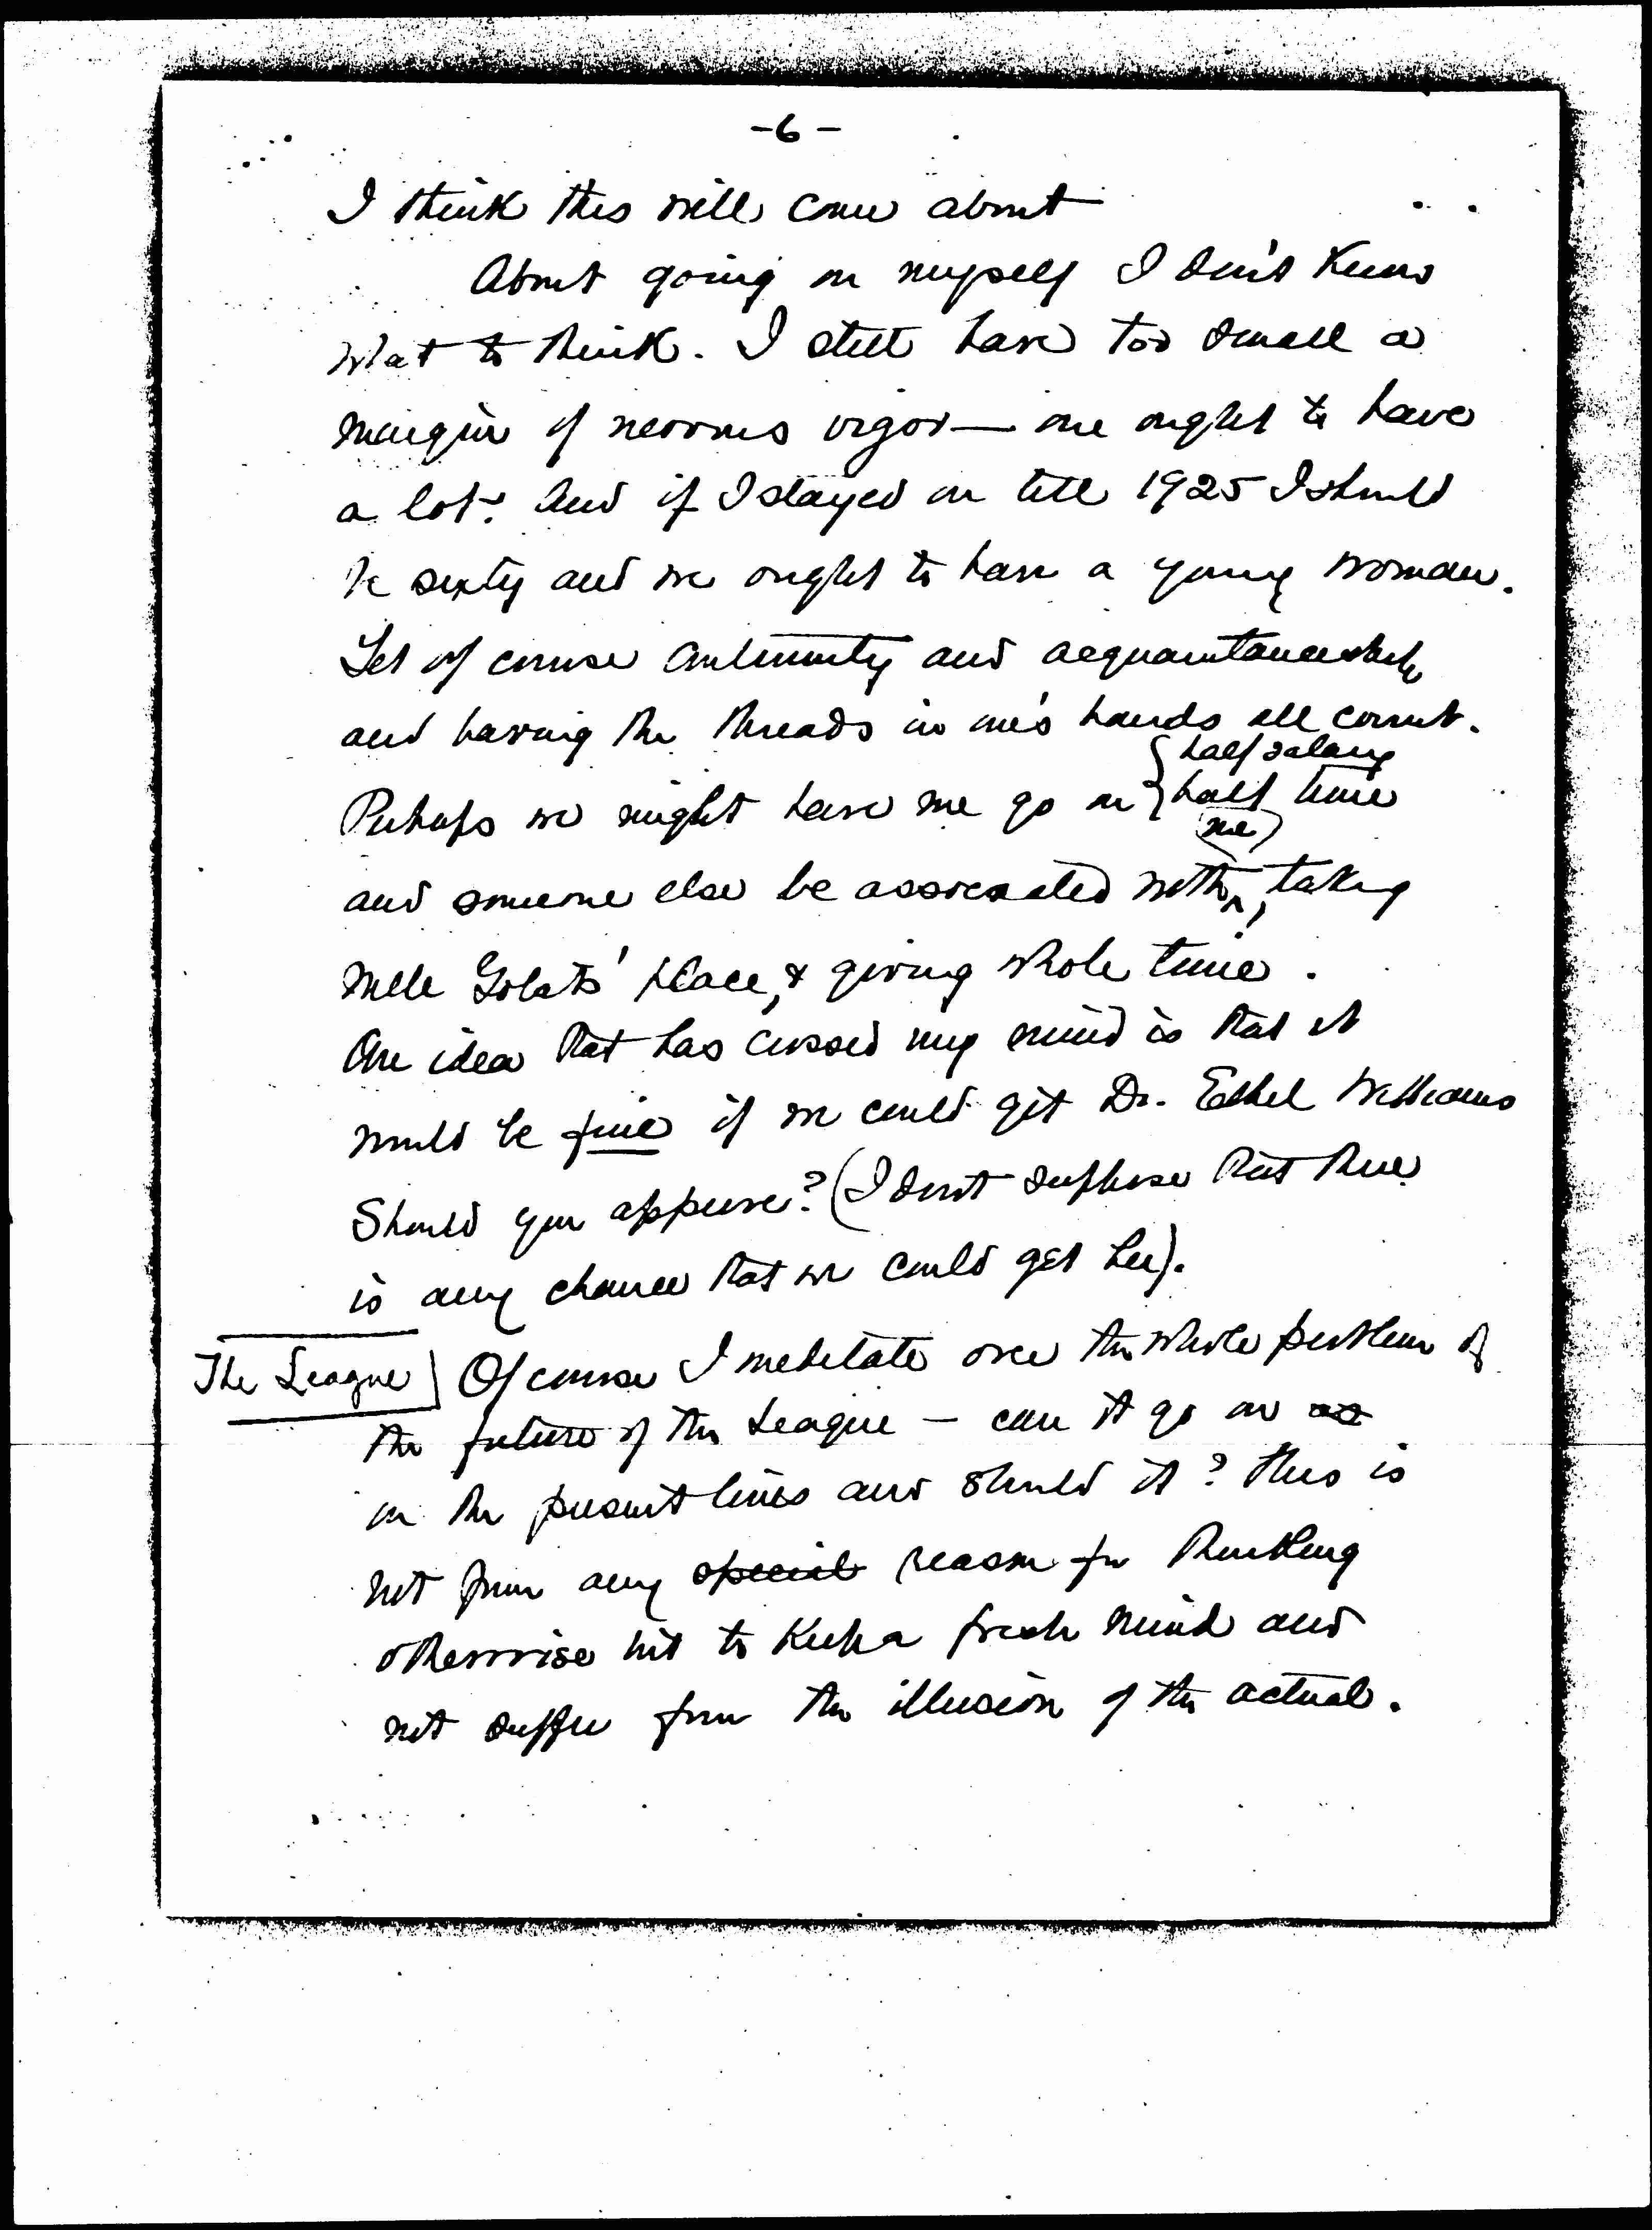 -6-
I think this will come about
About going on myself I don't know
what to think. I still have too small a
margin of nervous vigor — one ought to have
a lot. And if I stayed on till 1925 I should
be sixty and we ought to have a young woman.
Yet of course continuity and acquaintanceship
and having the threads in one's hands all count.
half salary
Perhaps we might have me go on { half time
(me)
and someone else be associated with ^, taking
Mlle Gobat's place, & giving whole time.
One idea that has crossed my mind is that it
would be fine if we could get Dr. Ethel Williams
Should you approve? (I don't suppose that there
is any chance that we could get her).
The League] Of course I meditate over the whole problem of
the future of the League — can it go on as
on the present lines and should it? This is
not from any special reason for thinking
otherwise but to keep a fresh mind and
not suffer from the illusion of the actual.